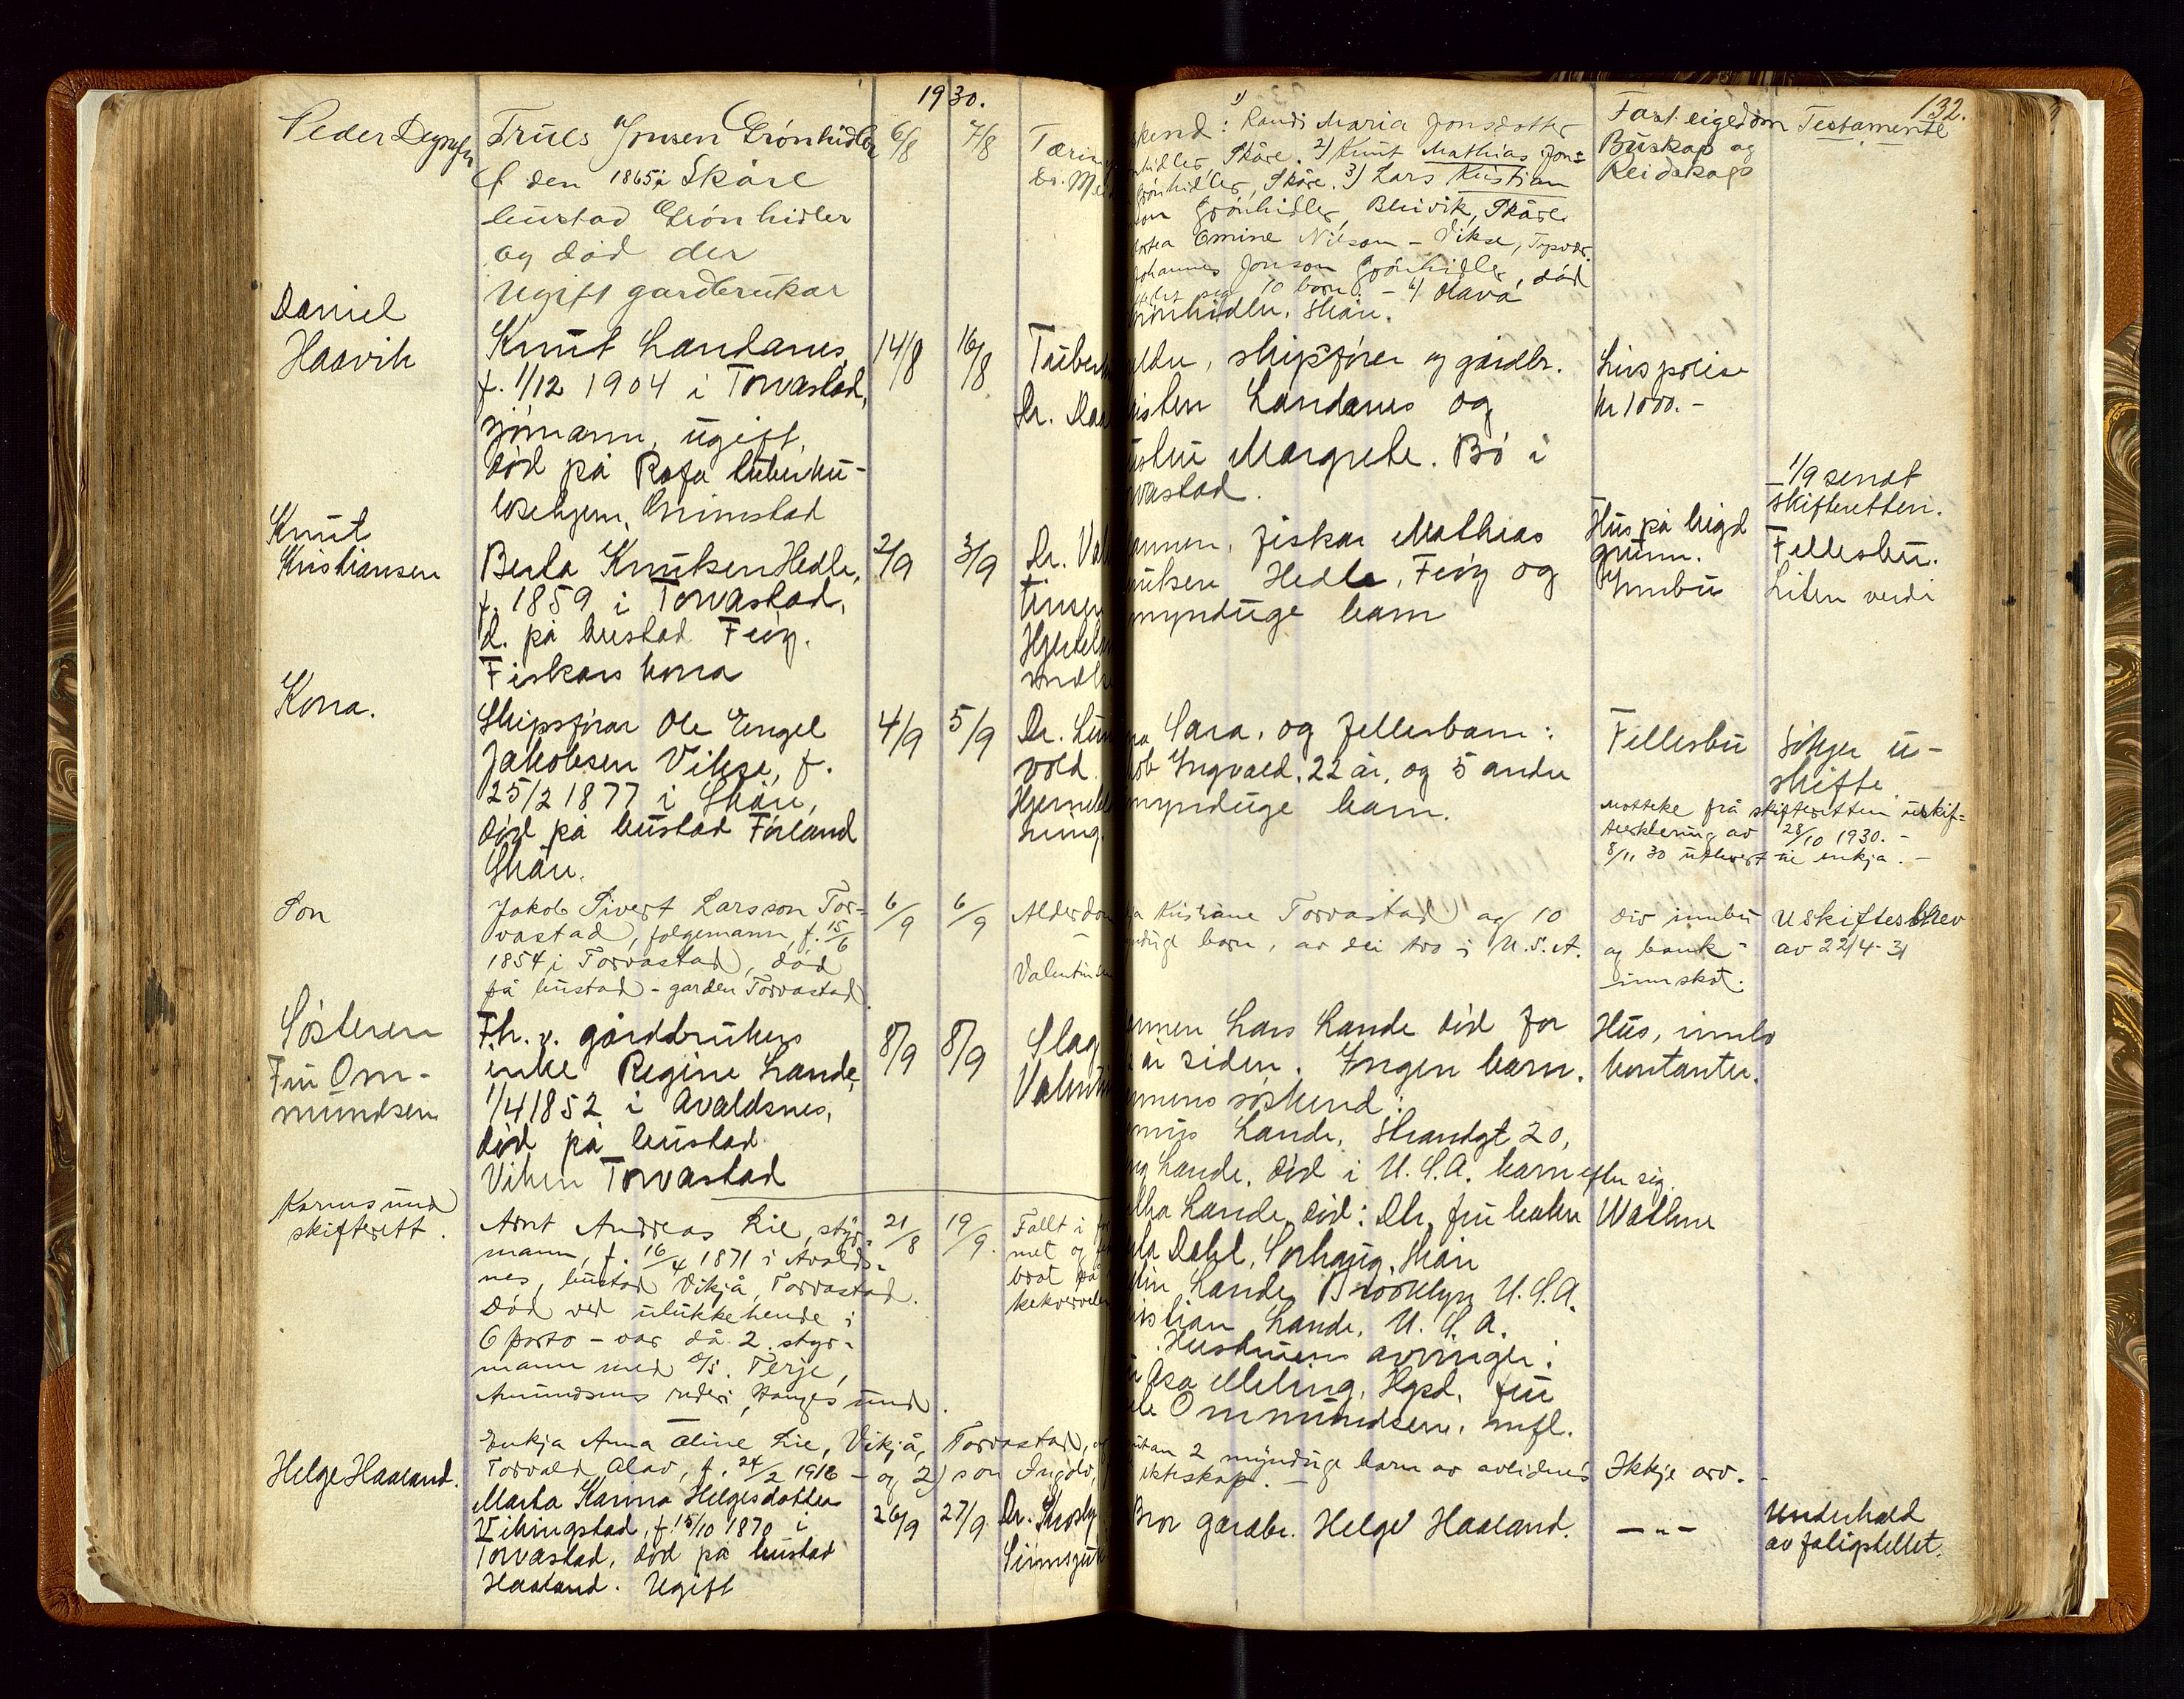 1930.
132.
Peder
Truls Jonsen Grönhidler
f den 1865 i Skåre
bustad Grönhidler
og död der
Ugift gardbrukar
6/8
7/8
Tæring
Dr.
skend: 1) Randi Maria Jonsdotter
Skåre. 2) Knut Mathias Jon=
Grönhidler, Skåre. 3) Lars Kristian
son Grönhidler, Bleivik, Skåre
Emine Nilson - Vikse, Tysvær.
Johannes Jonson Grönhidler, död
10 born. - 6) Olava
Grönhidler, Skåre.
Fast eigedom
Buskap og
Reidskap
Testamente
Daniel
Haavik
Knut Landanes,
f. 1/12 1904 i Torvastad,
sjömann, ugift,
död på Rofa tuberku-
losehjem, Grimstad
14/8
16/8
Tuberk
Dr.
eldre, skipsförer og gårdbr.
Landanes og
hustru Margrete. Bö i
vastad.
Livspolise
kr 1000.-
1/9 sendt
skifteretten.
Knut
Kristiansen
Berta Knutsen Hedle,
f. 1859 i Torvastad,
d. på bustad Feöy.
Fiskars kona
2/9
3/9
Dr. Val
tinsen
mannen, fiskar Mathias
Knutsen Hedle, Feöy og
myndige barn
Hus på bigd
grunn.
Innbu
Fellesbu.
Liten verdi
Kona.
Skipsförar Ole Engel
Jakobsen Vikse, f.
25/2 1877 i Skåre,
död på bustad Förland
Skåre.
4/9
5/9
Dr. Lun
vold.
Hjerneblö
ning.
na Sara, og fellesbarn:
kob Ingvald, 22 år, og 5 andre
myndige barn.
Fellesbu
Söker u-
skifte.
Motteke frå skifteretten uskif=
teerklering av 28/10 1930. -
8/11 30 utlevert til enkja. -
Son
Jakob Sivert Larsson Tor=
vastad, folgemann, f. 15/6
1854 i Torvastad, död
på bustad - garden Torvastad.
6/9
6/9
Alderdom
-
Valentinsen
Kristiane Torvastad og 10
myndige born, av dei tvo i U.S.A.
Div innbu
og bank-
innskot.
Uskiftesbrev
av 22/4-31
Sösteren
Fru Om-
mundsen
Fh. v. gårdbrukers
enke Regine Lande,
1/4 1852 i Avaldsnes,
död på bustad
Viken Torvastad
8/9
8/9
Slag
Valentin
mannen Lars Lande död for
år siden. Ingen barn.
mannens söskend:
Lande, Strandgt 20,
Lande, död i U.S.A. barn efter sig.
Lande, död: Dtr, fru
Dahl, Sörhaug, Skåre
Lande, Brooklyn U.S.A.
Kristian Lande, U.S.A.
Hustruens arvinger:
Åsa Meling, Hgsd, fru
Ommundsen, mfl.
Hus, innbo
kontanter.
Karmsund
skifterett.
Arnt Andreas Lie, styr=
mann, f. 16/4 1871 i Avalds=
nes, bustad Vikjå, Torvastad.
Död ved ulukkehende i
Oporto - var då 2. styr=
mann med D/S. Terje,
Amundsens rederi, Haugesund.
21/8
19/9.
Fallt i
met og
brot på
Enkja Anna Oline Lie, Vikjå, Torvastad, og
Torvald Olav, f. 24/2 1916 - og 2) son Ingolv,
utan 2 myndige barn av avlidnes
ekteskap. -
Ikkje arv. -
Helge Haaland.
Marta Karina Helgesdotter
Vikingstad, f. 15/10 1870 i
Torvastad, död på bustad
Haaland. Ugift
26/9
27/9
Dr.
Sinnssjuk
Bror gardbr. Helge Haaland.
- " -
Underhald
av fatigstellet.